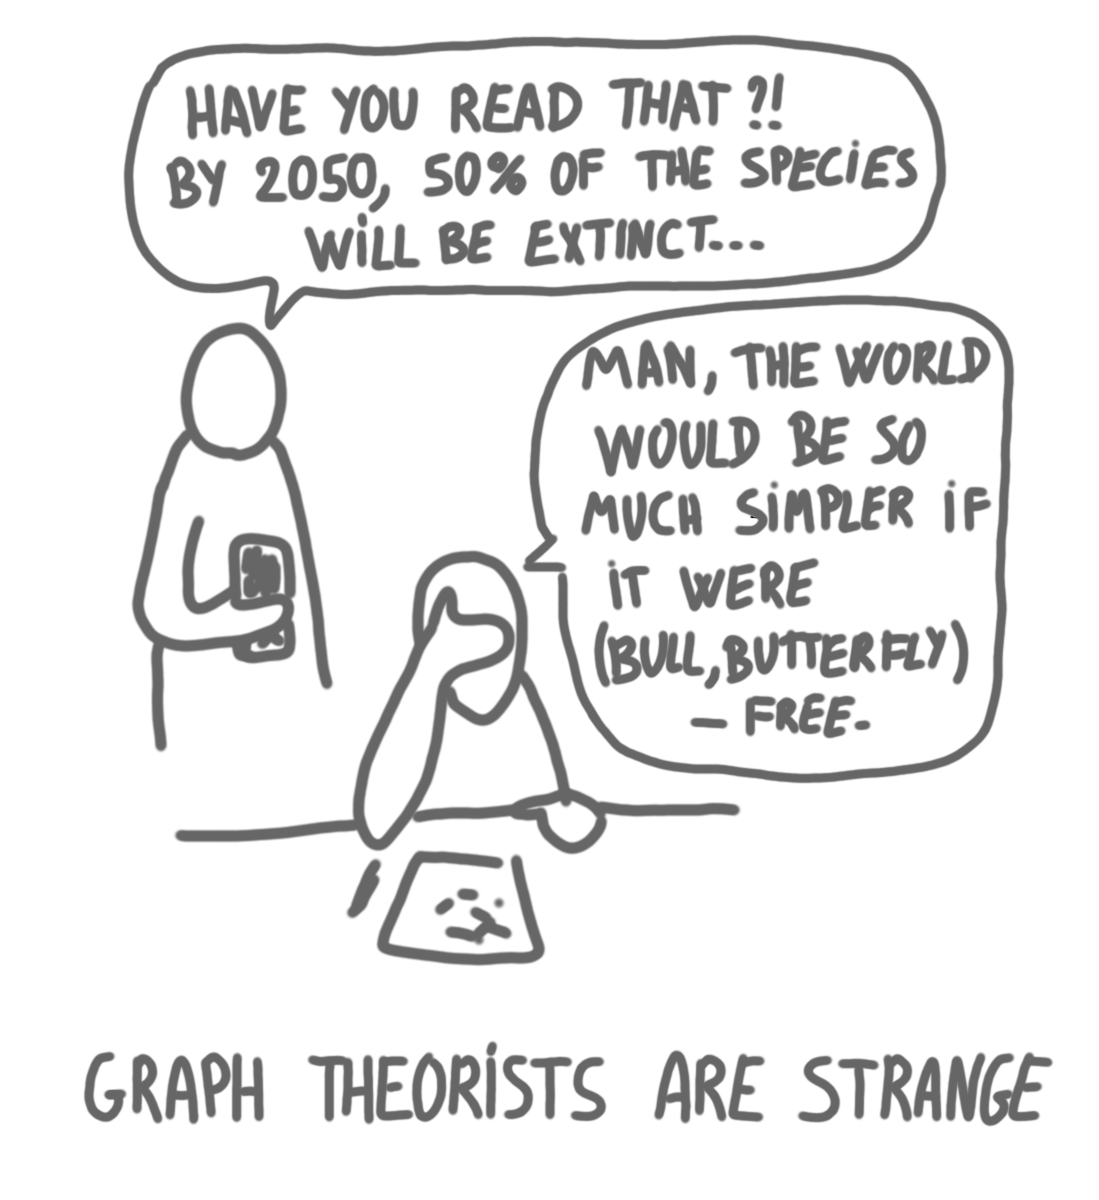 HAVE YOU READ THAT?!
BY 2050, 50% OF THE SPECIES
WILL BE EXTINCT...
MAN, THE WORLD
WOULD BE SO
MUCH SIMPLER IF
IT WERE
(BULL,BUTTERFLY)
- FREE.
GRAPH THEORISTS ARE STRANGE